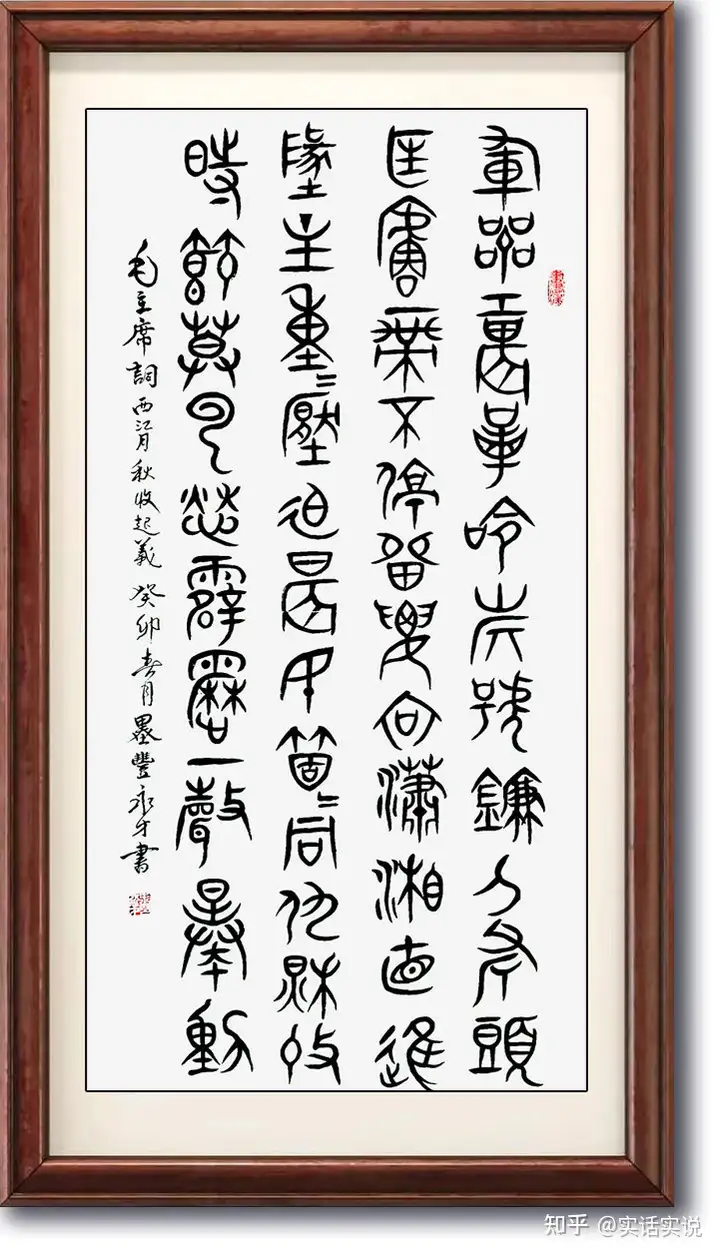 軍嘂工農革命旗號鐮刀斧頭
匡廬一帶不停留要向瀟湘直進
墬主重〻壓迫農民箇〻同仇秋收
時節莫云愁霹靂一聲暴動
毛主席詞 西江月 秋收起義 癸卯春月 墨豐永書
知乎 @实话实说